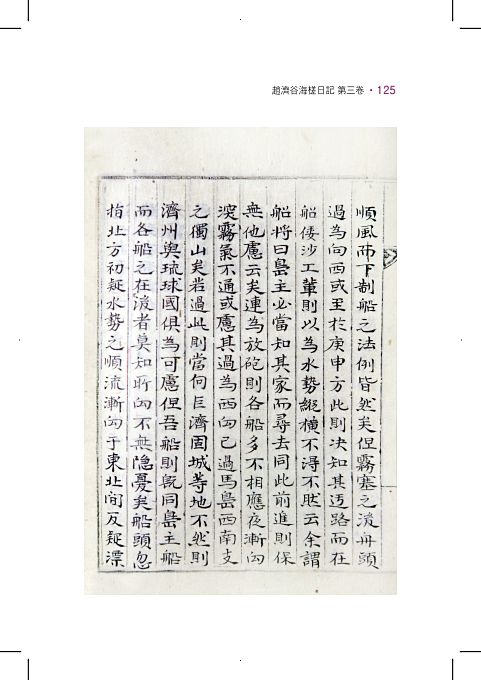 趙濟谷海槎日記 第三卷 · 125
順風而下制船之法例皆然矣但霧塞之後舟頭
過為向西或至於庚申方此則决知其迃路而在
船倭沙工輩則以為水勢縱橫不淂不然云余謂
船將曰島主必當知其家而尋去同此前進則保
無他慮云矣連為放砲則各船多不相應夜漸向
深霧氣不通或慮其過為西向已過馬島西南支
之獨山矣若過此則當向巨濟固城等地不然則
濟州與琉球國俱為可慮但吾船則旣同島主船
而各船之在後者莫知所向不無隐憂矣船頭忽
指北方初疑水勢之順流漸向于東北间反疑漂